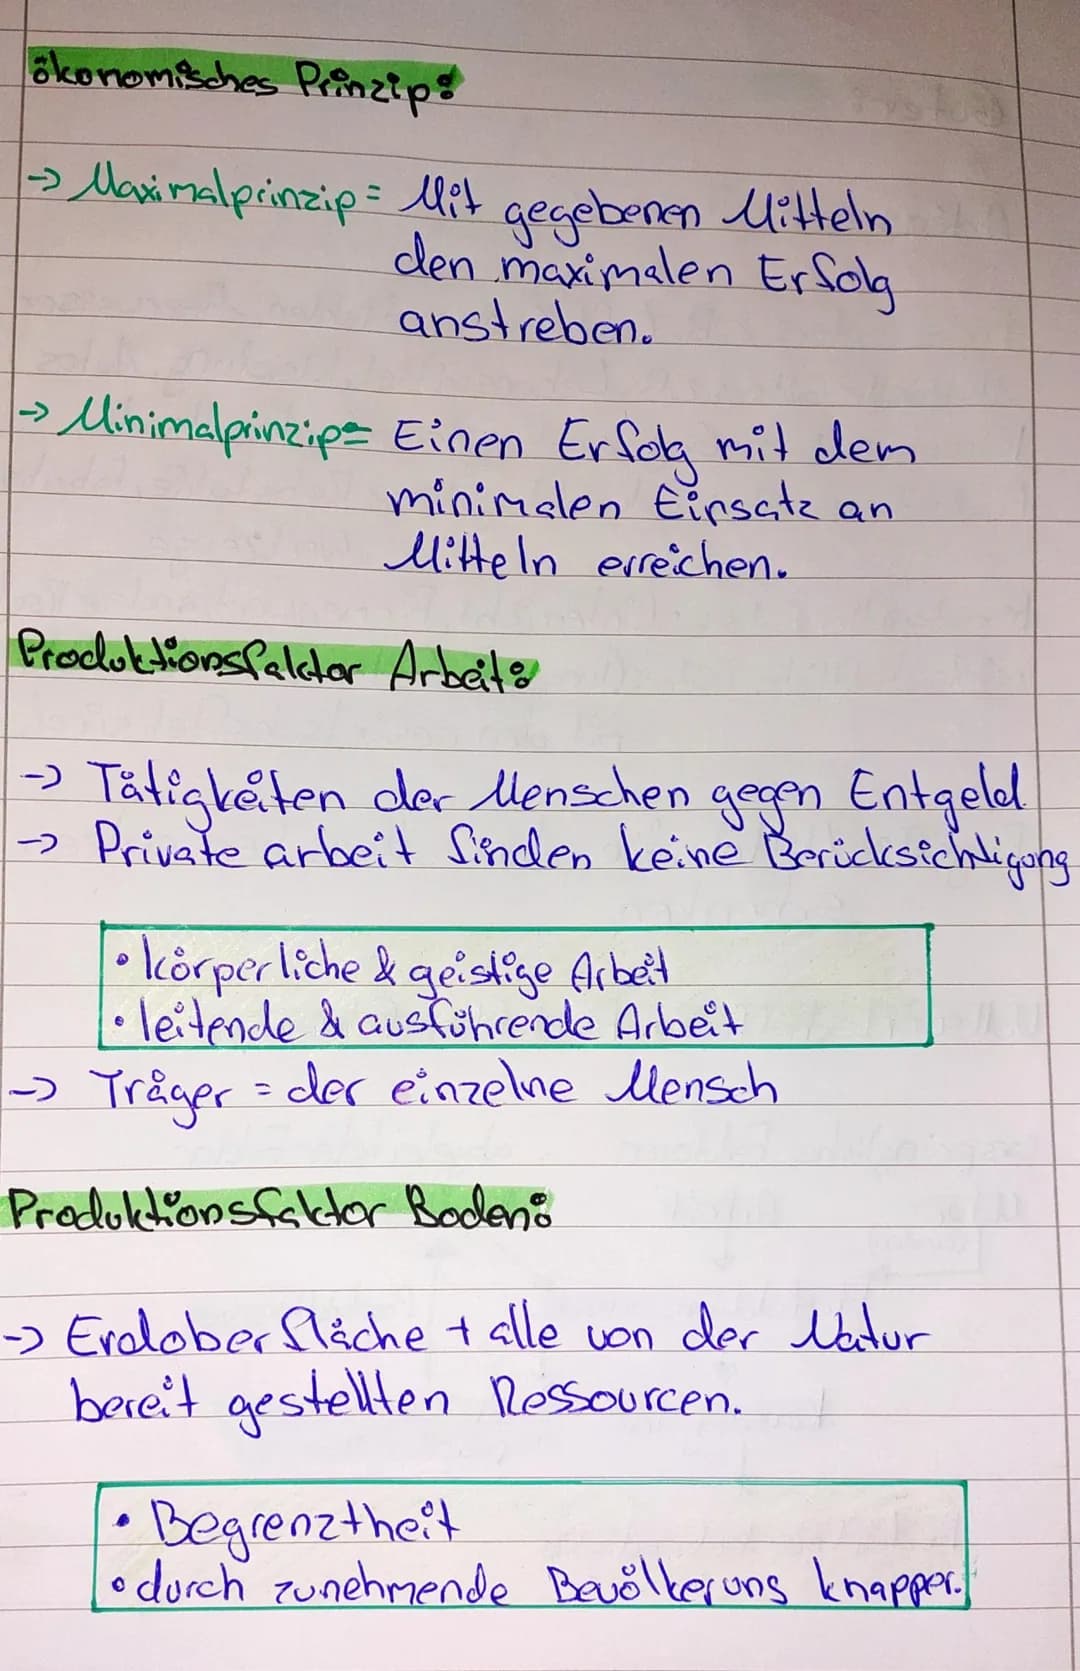 ökonomisches Prinzip:
-> Maximalprinzip = Mit gegebenen Mitteln
den maximalen Erfolg
anstreben.
-> Minimalprinzip = Einen Erfolg mit dem
minimalen Einsatz an
Mitteln erreichen.
Produktionsfaktor Arbeit:
-> Tätigkeiten der Menschen gegen Entgeld
-> Private arbeit finden keine Berücksichtigung
• körperliche & geistige Arbeit
• leitende & ausführende Arbeit
-> Träger = der einzelne Mensch
Produktionsfaktor Boden:
-> Erdoberfläche + alle von der Natur
bereit gestellten Ressourcen.
• Begrenztheit
• durch zunehmende Bevölkerung knapper.